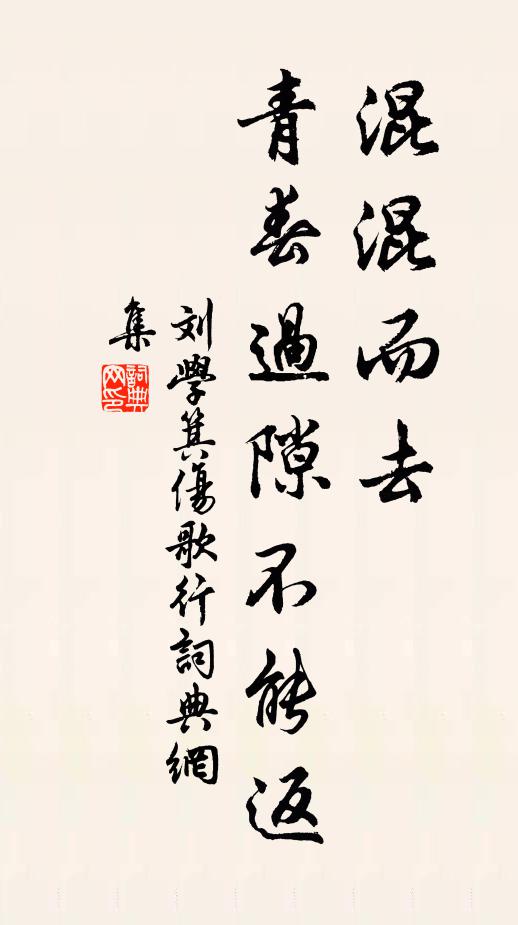 混混而去
青春過隙不能返
刘學箕傷歌行詞典網
集
詞典网印